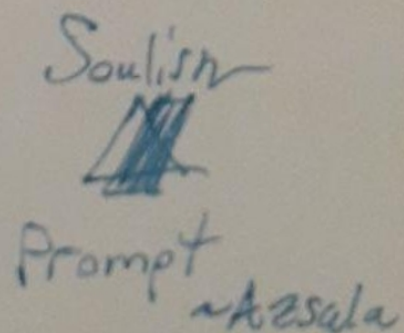 Soulish
Prompt
~Azsala